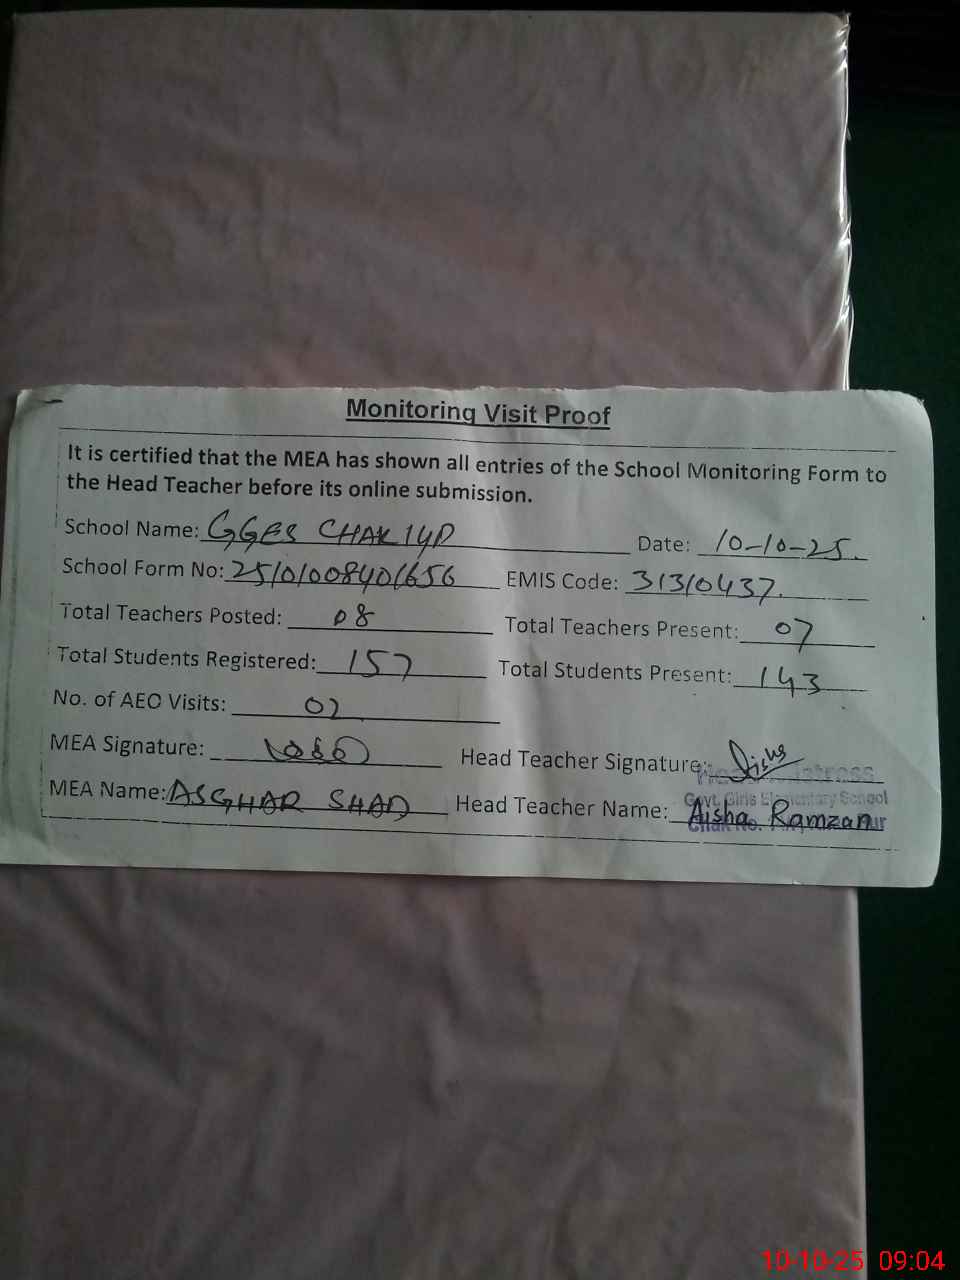 Monitoring Visit Proof
It is certified that the MEA has shown all entries of the School Monitoring Form to
the Head Teacher before its online submission.
School Name: GGES CHAK 14D Date: 10-10-25.
School Form No: 25101008401656 EMIS Code: 31310437.
Total Teachers Posted: 08 Total Teachers Present: 07
Total Students Registered: 157 Total Students Present: 143
No. of AEO Visits: 02
MEA Signature: Head Teacher Signature: Aisha
MEA Name: ASGHAR SHAD Head Teacher Name: Aisha Ramzan
Govt. Girls Elementary School
Chak No.
10-10-25 09:04